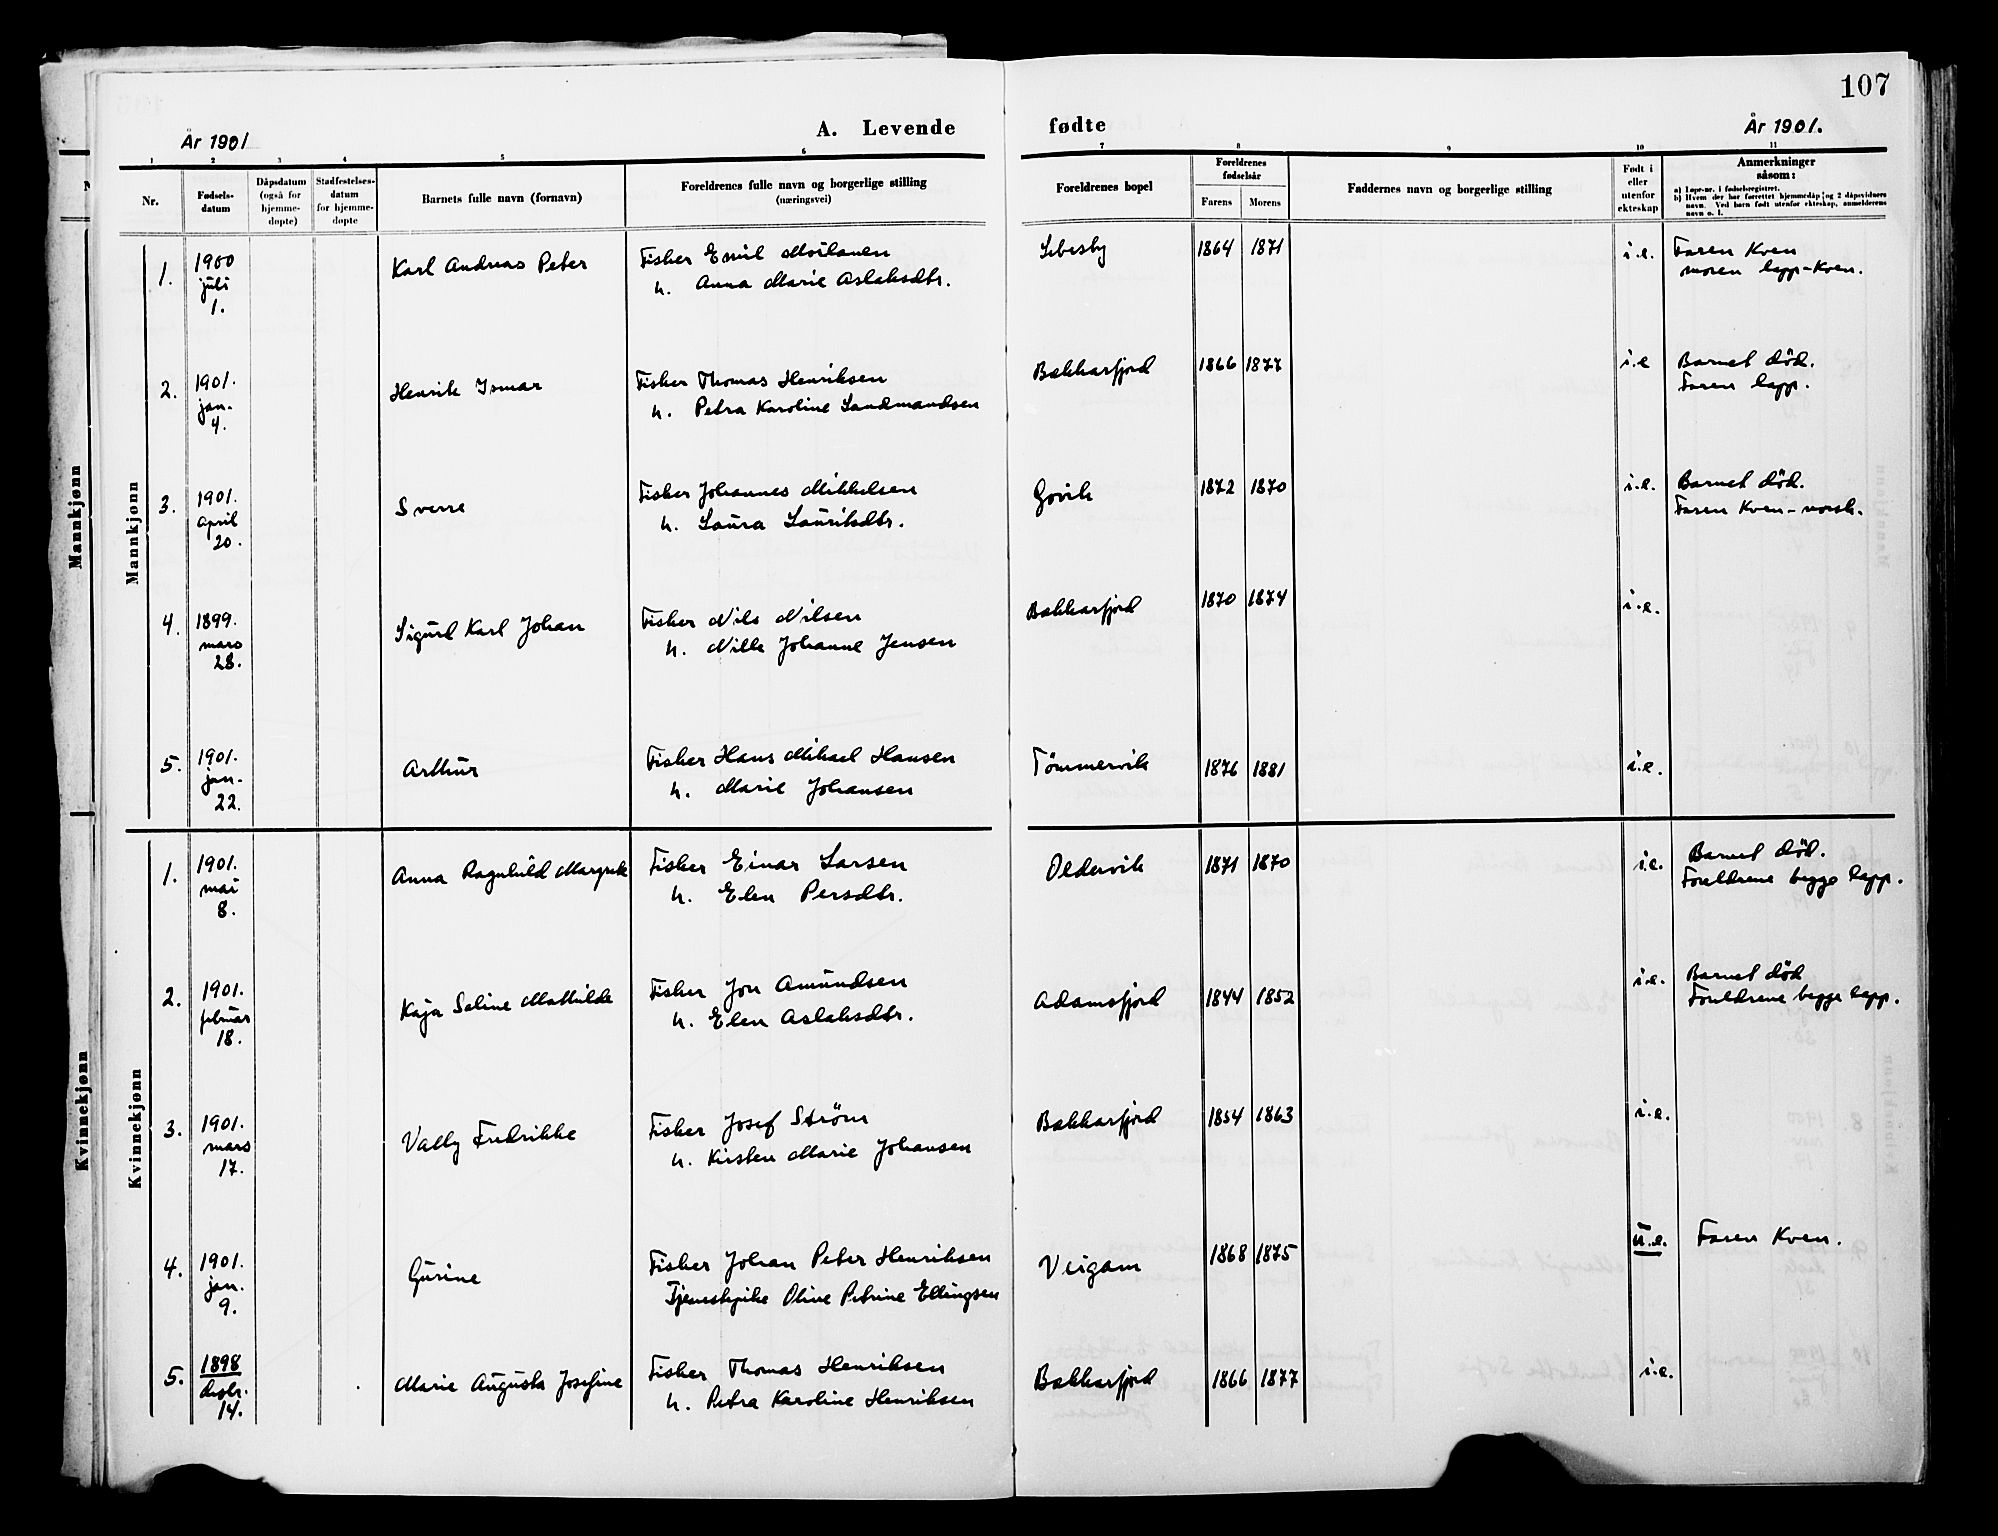 107
År 1901
A. Levende
fødte
År 1901.
1 2 3 4 5 6 7 8 9 10 11
Nr.
Fødsels-
datum
Dåpsdatum
(også for
hjemme-
døpte)
Stadfestelses-
datum
for hjemme-
døpte
Barnets fulle navn (fornavn)
Foreldrenes fulle navn og borgerlige stilling
(næringsvei)
Foreldrenes bopel
Foreldrenes
fødselsår
Farens Morens
Faddernes navn og borgerlige stilling
Født i
eller
utenfor
ekteskap
Anmerkninger
såsom:
a) Løpe-nr. i fødselsregistret.
b) Hvem der har forrettet hjemmedåp og 2 dåpsvidners
navn. Ved barn født utenfor ekteskap, anmelderens
navn o. l.
Mannkjønn
Mannkjønn
1. 1900 juli 1. Karl Andreas Peter
Fisker Emil
h. Anna Marie Aslaksdtr.
Lebesby 1864 1871 i.e. Faren Kven
moren lapp-Kven.
2. 1901. jan. 4. Henrik Ismar
Fisker Thomas Henriksen
h. Petra Karoline Sandmandsen
Bekkarfjord 1866 1877 i.e Barnet død.
Faren lapp.
3. 1901. april 20. Sverre
Fisker Johannes Mikkelsen
h. Laura Lauritsdtr.
Govik 1872 1870 i.e. Barnet død.
Faren Kven-norsk.
4. 1899. mars 28. Sigurd Karl Johan
Fisker Nils Nilsen
h. Nille Johanne Jensen
Bekkarfjord 1870 1874 i.e.
5. 1901. jan. 22. Arthur
Fisker Hans Mikael Hansen
h. Marie Johansen
Tømmervik 1876 1881 i.e.
Kvinnekjønn
Kvinnekjønn
1. 1901. mai 8. Anna Ragnhild Margrete
Fisker Einar Larsen
h. Elen Persdtr.
Oldervik 1871 1870 i.e. Barnet død.
Foreldrene begge lapp.
2. 1901. februar 18. Kaja Seline Mathilde
Fisker Jon Amundsen
h. Elen Aslaksdtr.
Adamsfjord 1844 1852 i.e. Barnet død
Foreldrene begge lapp.
3. 1901. mars 17. Vally Fredrikke
Fisker Josef Strøm
h. Kirsten Marie Johansen
Bekkarfjord 1854 1863 i.e.
4. 1901. jan. 9. Gurine
Fisker Johan Peter Henriksen
Tjenestepike Oline Petrine Ellingsen
Veigam 1868 1875 u.e. Faren Kven.
5. 1898 desbr. 14. Marie Augusta Josefine
Fisker Thomas Henriksen
h. Petra Karoline Henriksen
Bekkarfjord 1866 1877 i.e.